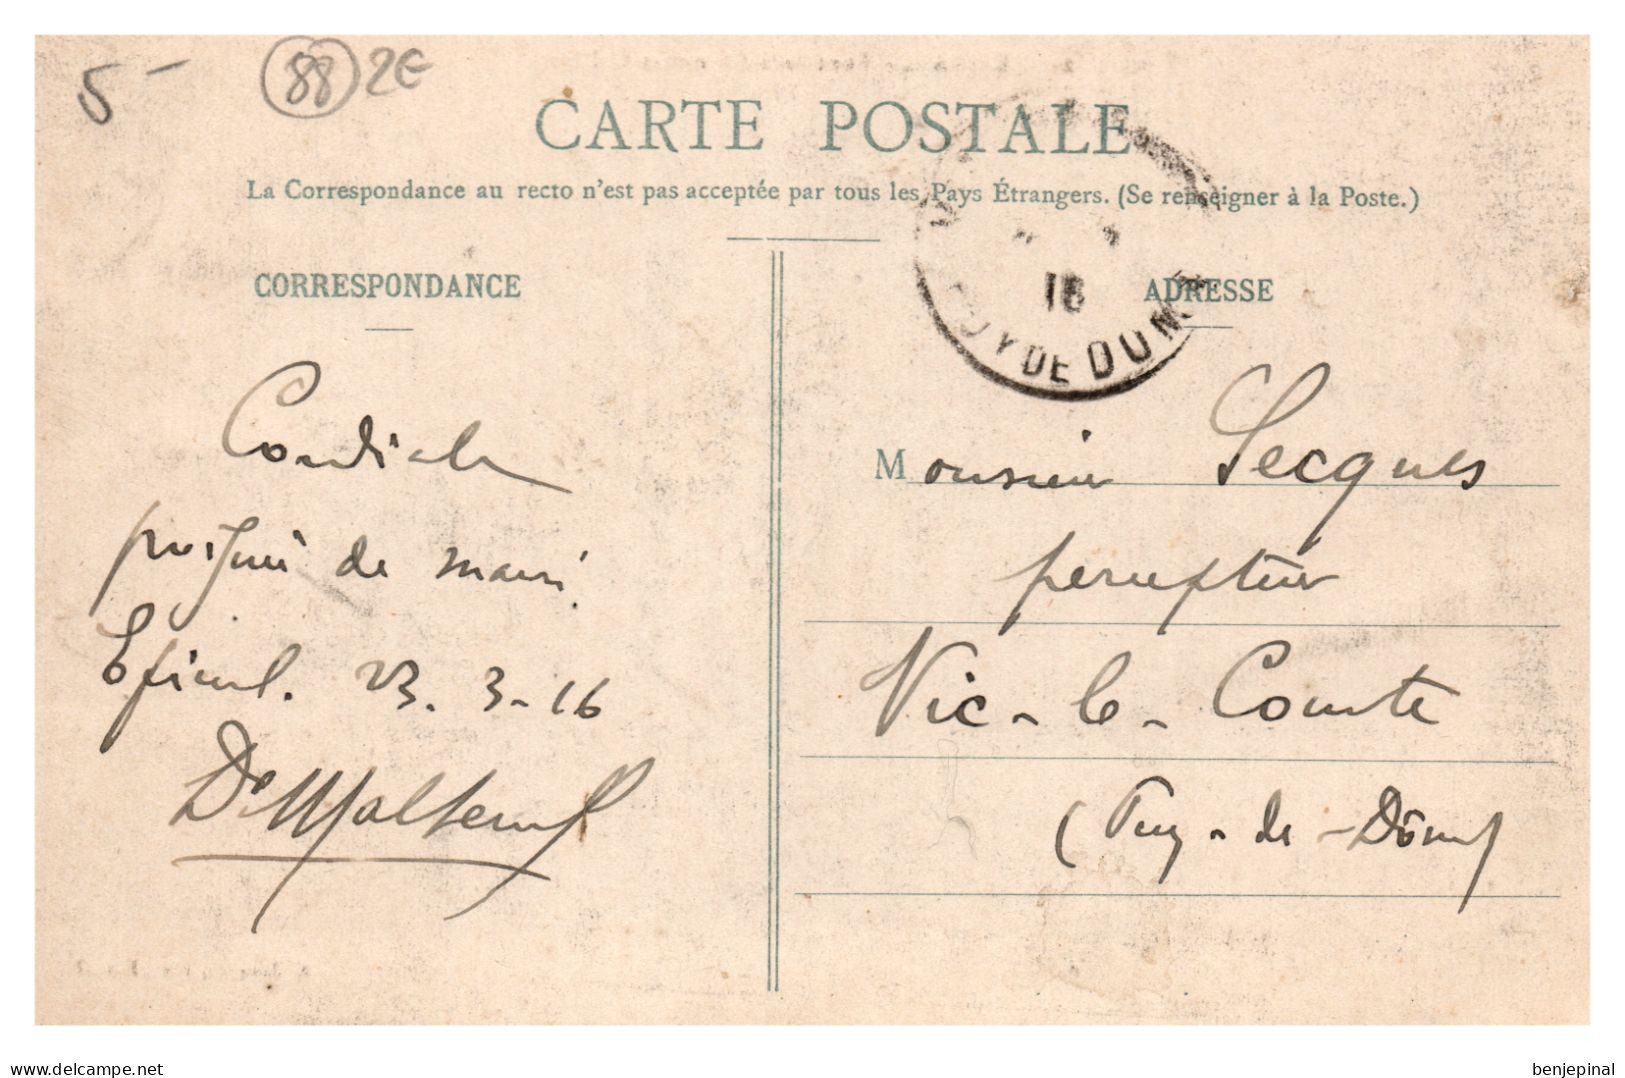 5 -
88 2€
CARTE POSTALE
La Correspondance au recto n'est pas acceptée par tous les Pays Étrangers. (Se renseigner à la Poste.)
CORRESPONDANCE
Cordiale
poignée de main.
Epinal. 23. 3-16
16
PUY DE DOME
ADRESSE
Monsieur Secques
percepteur
Vic-le-Comte
(Puy-de-Dôme)
www.delcampe.net
benjepinal